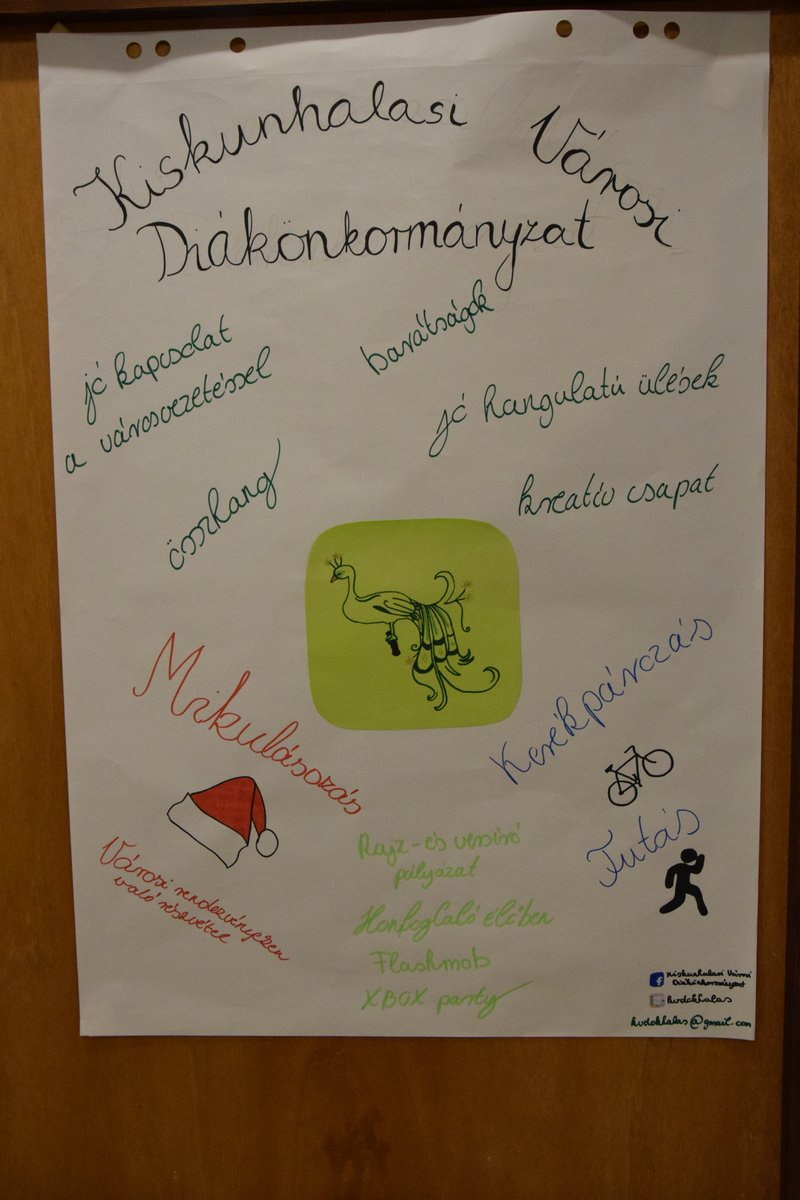 Kiskunhalasi Városi
Diákönkormányzat
jó kapcsolat
a városvezetéssel
barátságok
jó hangulatú ülések
összhang
kreatív csapat
Mikulásozás
Kerékpározás
Futás
Városi rendezvényeken
való részvétel
Rajz- és versíró
pályázat
Honfoglaló élőben
Flashmob
XBOX party
Kiskunhalasi Városi
Diákönkormányzat
kvdokhalas
kvdokhalas@gmail.com